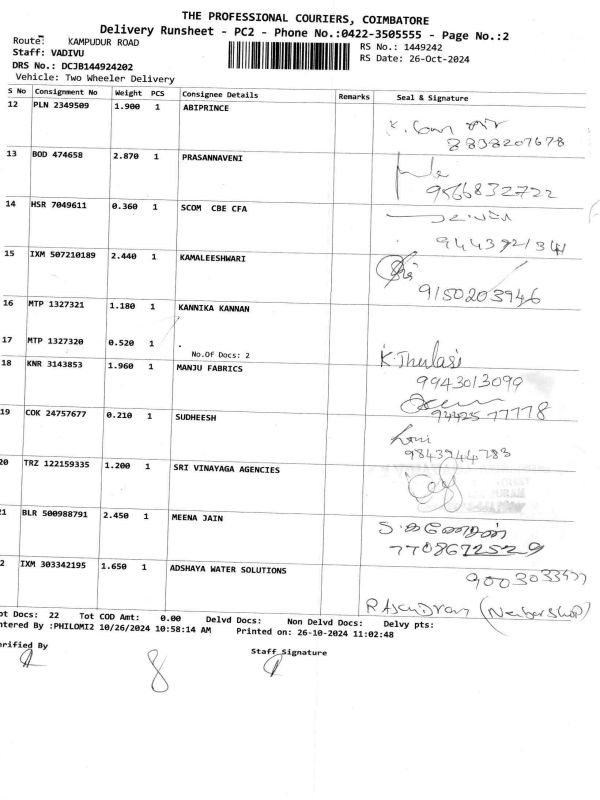 THE PROFESSIONAL COURIERS, COIMBATORE
Delivery Runsheet - PC2 - Phone No.:0422-3505555 - Page No.:2
Route: KAMPUDUR ROAD
RS No.: 1449242
Staff: VADIVU
RS Date: 26-Oct-2024
DRS No.: DCJB144924202
Vehicle: Two Wheeler Delivery
S No Consignment No Weight PCS Consignee Details Remarks Seal & Signature
12 PLN 2349509 1.900 1 ABIPRINCE
8838207678
13 BOD 474658 2.870 1 PRASANNAVENI
9566832722
14 HSR 7049611 0.360 1 SCOM CBE CFA
15 IXM 507210189 2.440 1 KAMALEESHWARI
9150203946
16 MTP 1327321 1.180 1 KANNIKA KANNAN
17 MTP 1327320 0.520 1 .
No.Of Docs: 2
K. Thulasi
18 KNR 3143853 1.960 1 MANJU FABRICS
9943013099
19 COK 24757677 0.210 1 SUDHEESH
9442577778
9843944783
20 TRZ 122159335 1.200 1 SRI VINAYAGA AGENCIES
21 BLR 500988791 2.450 1 MEENA JAIN
7708672529
2 IXM 303342195 1.650 1 ADSHAYA WATER SOLUTIONS
Rajendran (Neibershop)
ot Docs: 22 Tot COD Amt: 0.00 Delvd Docs: Non Delvd Docs: Delvy pts:
ntered By :PHILOMI2 10/26/2024 10:58:14 AM Printed on: 26-10-2024 11:02:48
erified By
Staff Signature